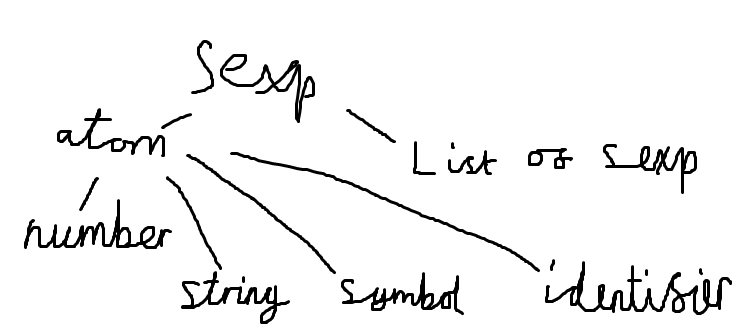 Sexp
atom
List of sexp
number
string
symbol
identifier